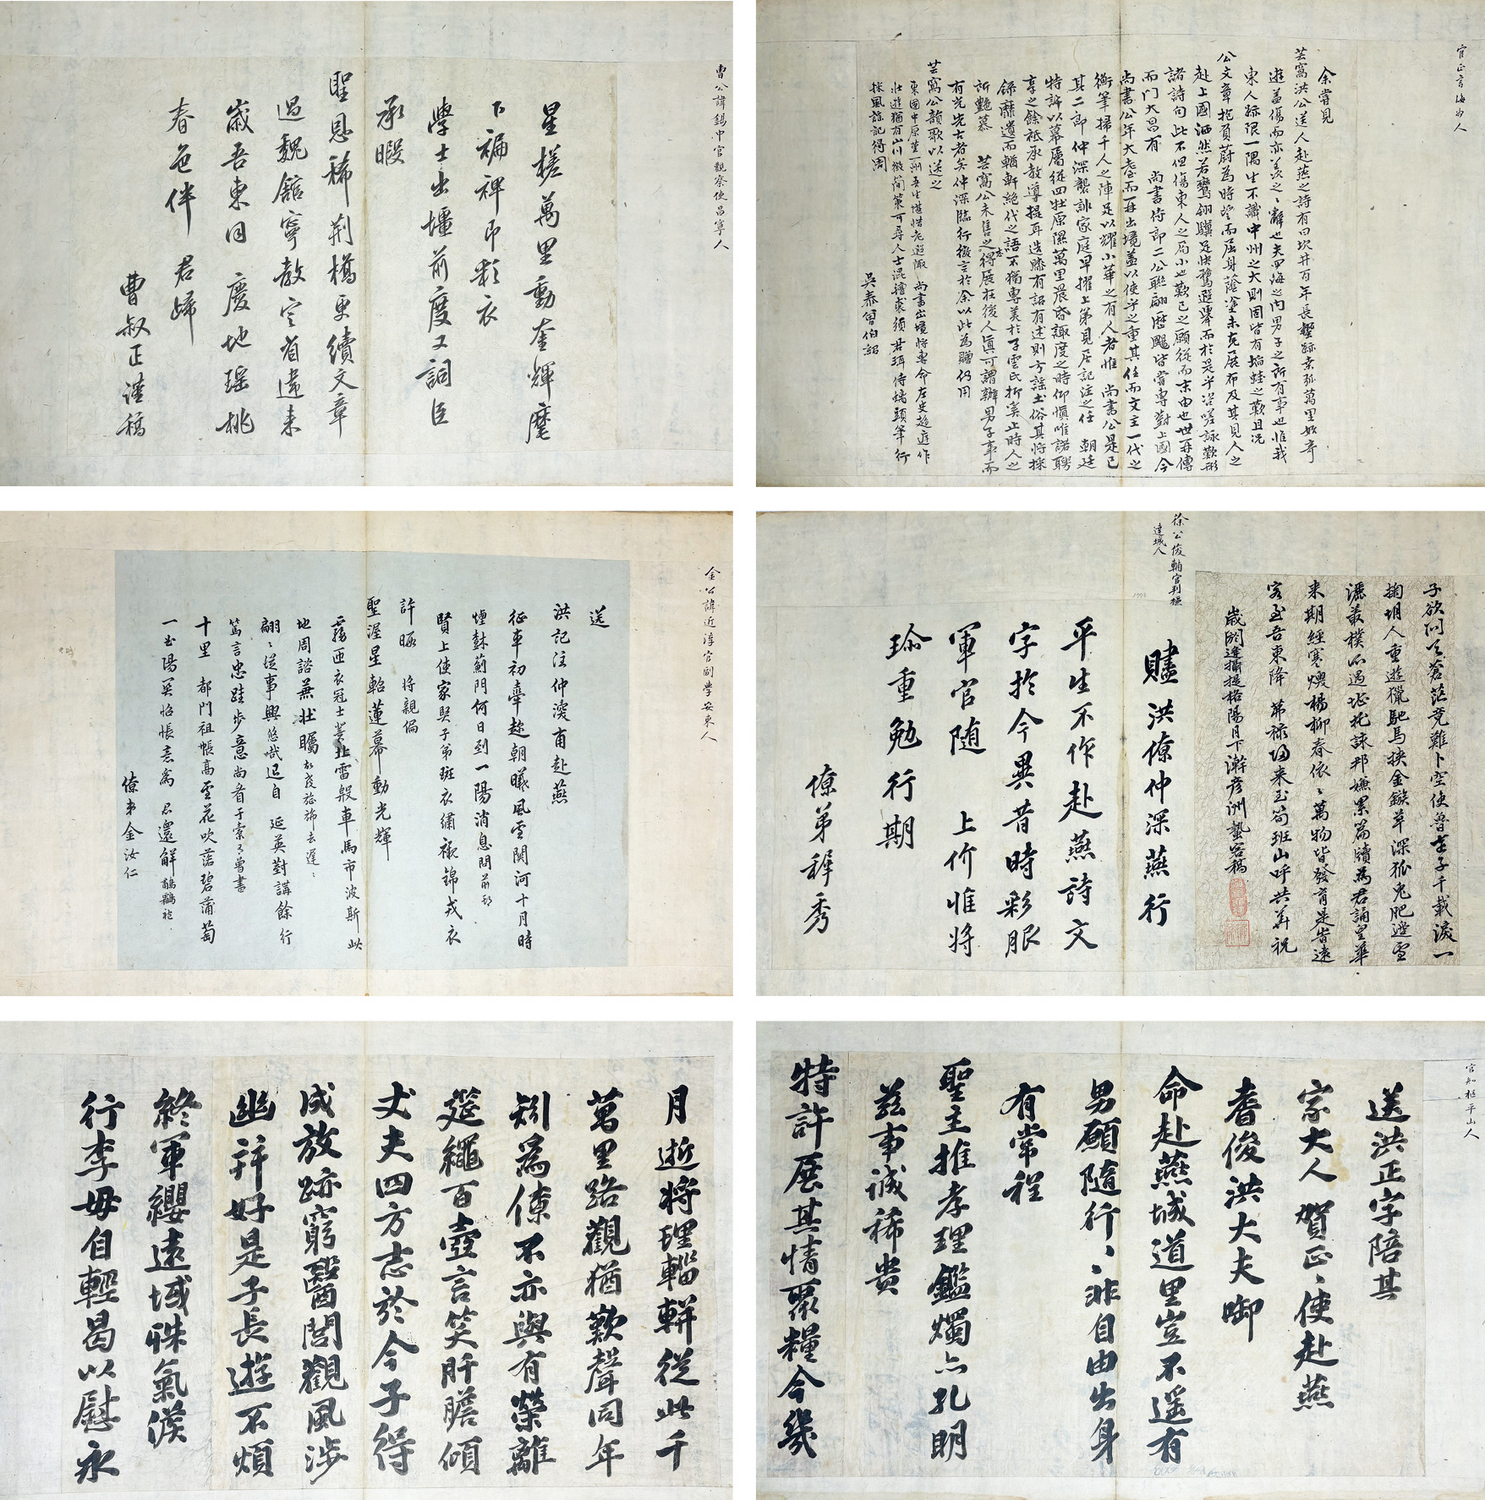 官正言海州人
余嘗見
芸窩洪公送人赴燕之詩有曰坎井百年長蹙跡桑弧萬里始奇
遊蓋傷而亦羨之之辭也夫四海之內男子之所有事也惟我
東人跡限一隅生不識中州之大則固皆有塪蛙之歎且況
公文章抱負蔚為時望而屈身蔭塗未克展布及其見人之
赴上國洒然若鸞翎驥足快騖遐擧而於是乎咨嗟詠歎形
諸詩句此不但傷東人之局小也歎己之願從而末由也世再傳
而門大昌有 尚書侍郎二公聯翩歷颺皆嘗專對上國今
尚書公年大耋而再出境蓋以使乎之重其任而文主一代之
衡筆掃千人之陣足以耀小華之有人者惟 尚書公是已
其二郎仲深襲訓家庭早擢上第見居記注之任 朝廷
特許以幕屬從四牡原隰萬里晨昏諏度之時仰愼唯諾聘
享之餘祗承敎導提再造膝有詔有述則方謠土俗其將採
錄靡遺而輶軒絶代之語不獨專美於子雲氏折奚止時人之
所艶慕 芸窩公未售之志得展在後人眞可謂辦男子事而
有光先古者矣仲深臨行徵言於余以此為贈仍用
芸窩公韻歌以送之
東國中原莖一州吾生堪惜老遐陬 尚書出境將專命左史趨庭作
壯遊猶有山川微簡策可尋人士混氈裘須君珥侍螭頭筆行
採風謠記得周
吳泰曾伯詔
曹公諱錫中官觀察使昌寧人
星槎萬里動奎輝麾
下褊裨即彩衣
學士出壃前度又詞臣
承暇
聖恩稀荆橋更續文章
過魏舘寧敎定省違來
歲吾東同慶地瑶桃
春色伴 君歸
曹叔正謹稿
子欲問天蒼茫竟難卜空使魯士子千載淚一
掬胡人重遊獵馳馬挾金鏃草深狐兎肥邊雪
灑叢樸不過岱托詠邦嫌累篇牘為君誦皇華
來期經寒燠楊柳春依依萬物皆發育是皆遠
客至吾東降茀祿歸來玉筍班山呼共華祝
歲閼逢攝提格陽月下澣彥洲蟄客稿
徐公俊輔官判樞
達城人
贐洪僚仲深燕行
平生不作赴燕詩文
字於今異昔時彩服
軍官隨 上价惟將
珎重勉行期
僚弟稺秀
金公諱近淳官副學安東人
送
洪記注仲深甫赴燕
征車初擧趁朝曦風雪関河十月時
煙蘇薊門何日到一陽消息問前邨
賢上使家賢子弟班衣繡襮錦戎衣
許暇 將親偏
聖渥星軺蓮幕動光輝
霧匝衣冠士塞北雷殷車馬市波斯此
地周諮兼壯矚
翩翩從事興悠哉迟自 延英對講餘行
篤言忠跬步意尚看于索乃曾書
十里 都門祖帳高雪花吹落碧蒲萄
一盃陽關怊悵意
僚弟金汝仁
官知樞平山人
送洪正字陪其
家大人賀正正使赴燕
耆俊洪大夫啣
命赴燕城道里豈不遥有
男願隨行行非自由出身
有常程
聖主推孝理鑑燭亦孔明
茲事誠稀貴
特許展其情聚糧今幾
月逝將理輜軿從此千
萬里路觀猶歎聲同年
矧爲僚不亦與有榮離
筵繩百壺言笑肝膽傾
丈夫四方志於今子得
成放跡窮醫閭觀風涉
幽幷好是子長遊不煩
終軍纓遠域殊氣候
行李毋自輕曷以慰永